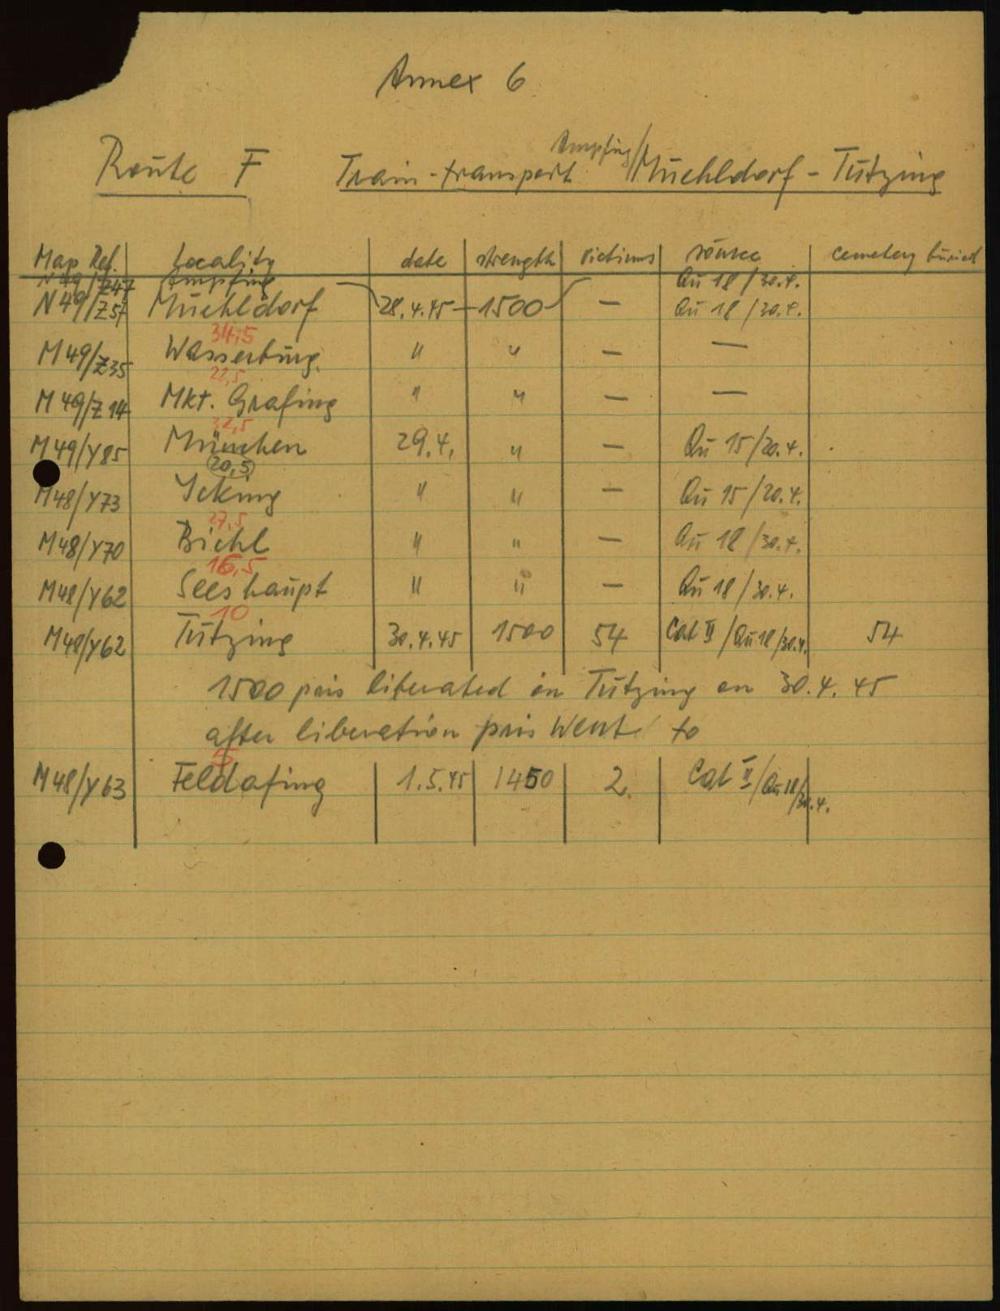 Annex 6
Route F Train-transport Ampfing/Muehldorf - Tutzing
Map Ref. Locality date strength victims source cemetery buried
N49/Z47 Ampfing Qu 18/30.4.
N49/Z57 Muehldorf 28.4.45 - 1500 — Qu 18/30.4.
34,5
M49/Z35 Wasserburg. " " — —
22,5
M49/Z14 Mkt. Grafing " " — —
32,5
M49/Y85 München 29.4. " — Qu 15/20.4.
(20,5)
M48/Y73 Icking " " — Qu 15/20.4.
27,5
M48/Y70 Bichl " " — Qu 18/30.4.
16,5
M48/Y62 Seeshaupt " " — Qu 18/30.4.
10
M48/Y62 Tutzing 30.4.45 1500 54 Cat II/Qu 18/30.4. 54
1500 pris liberated in Tutzing on 30.4.45
after liberation pris went to
5
M48/Y63 Feldafing 1.5.45 1450 2. Cat II/Qu 18/30.4.